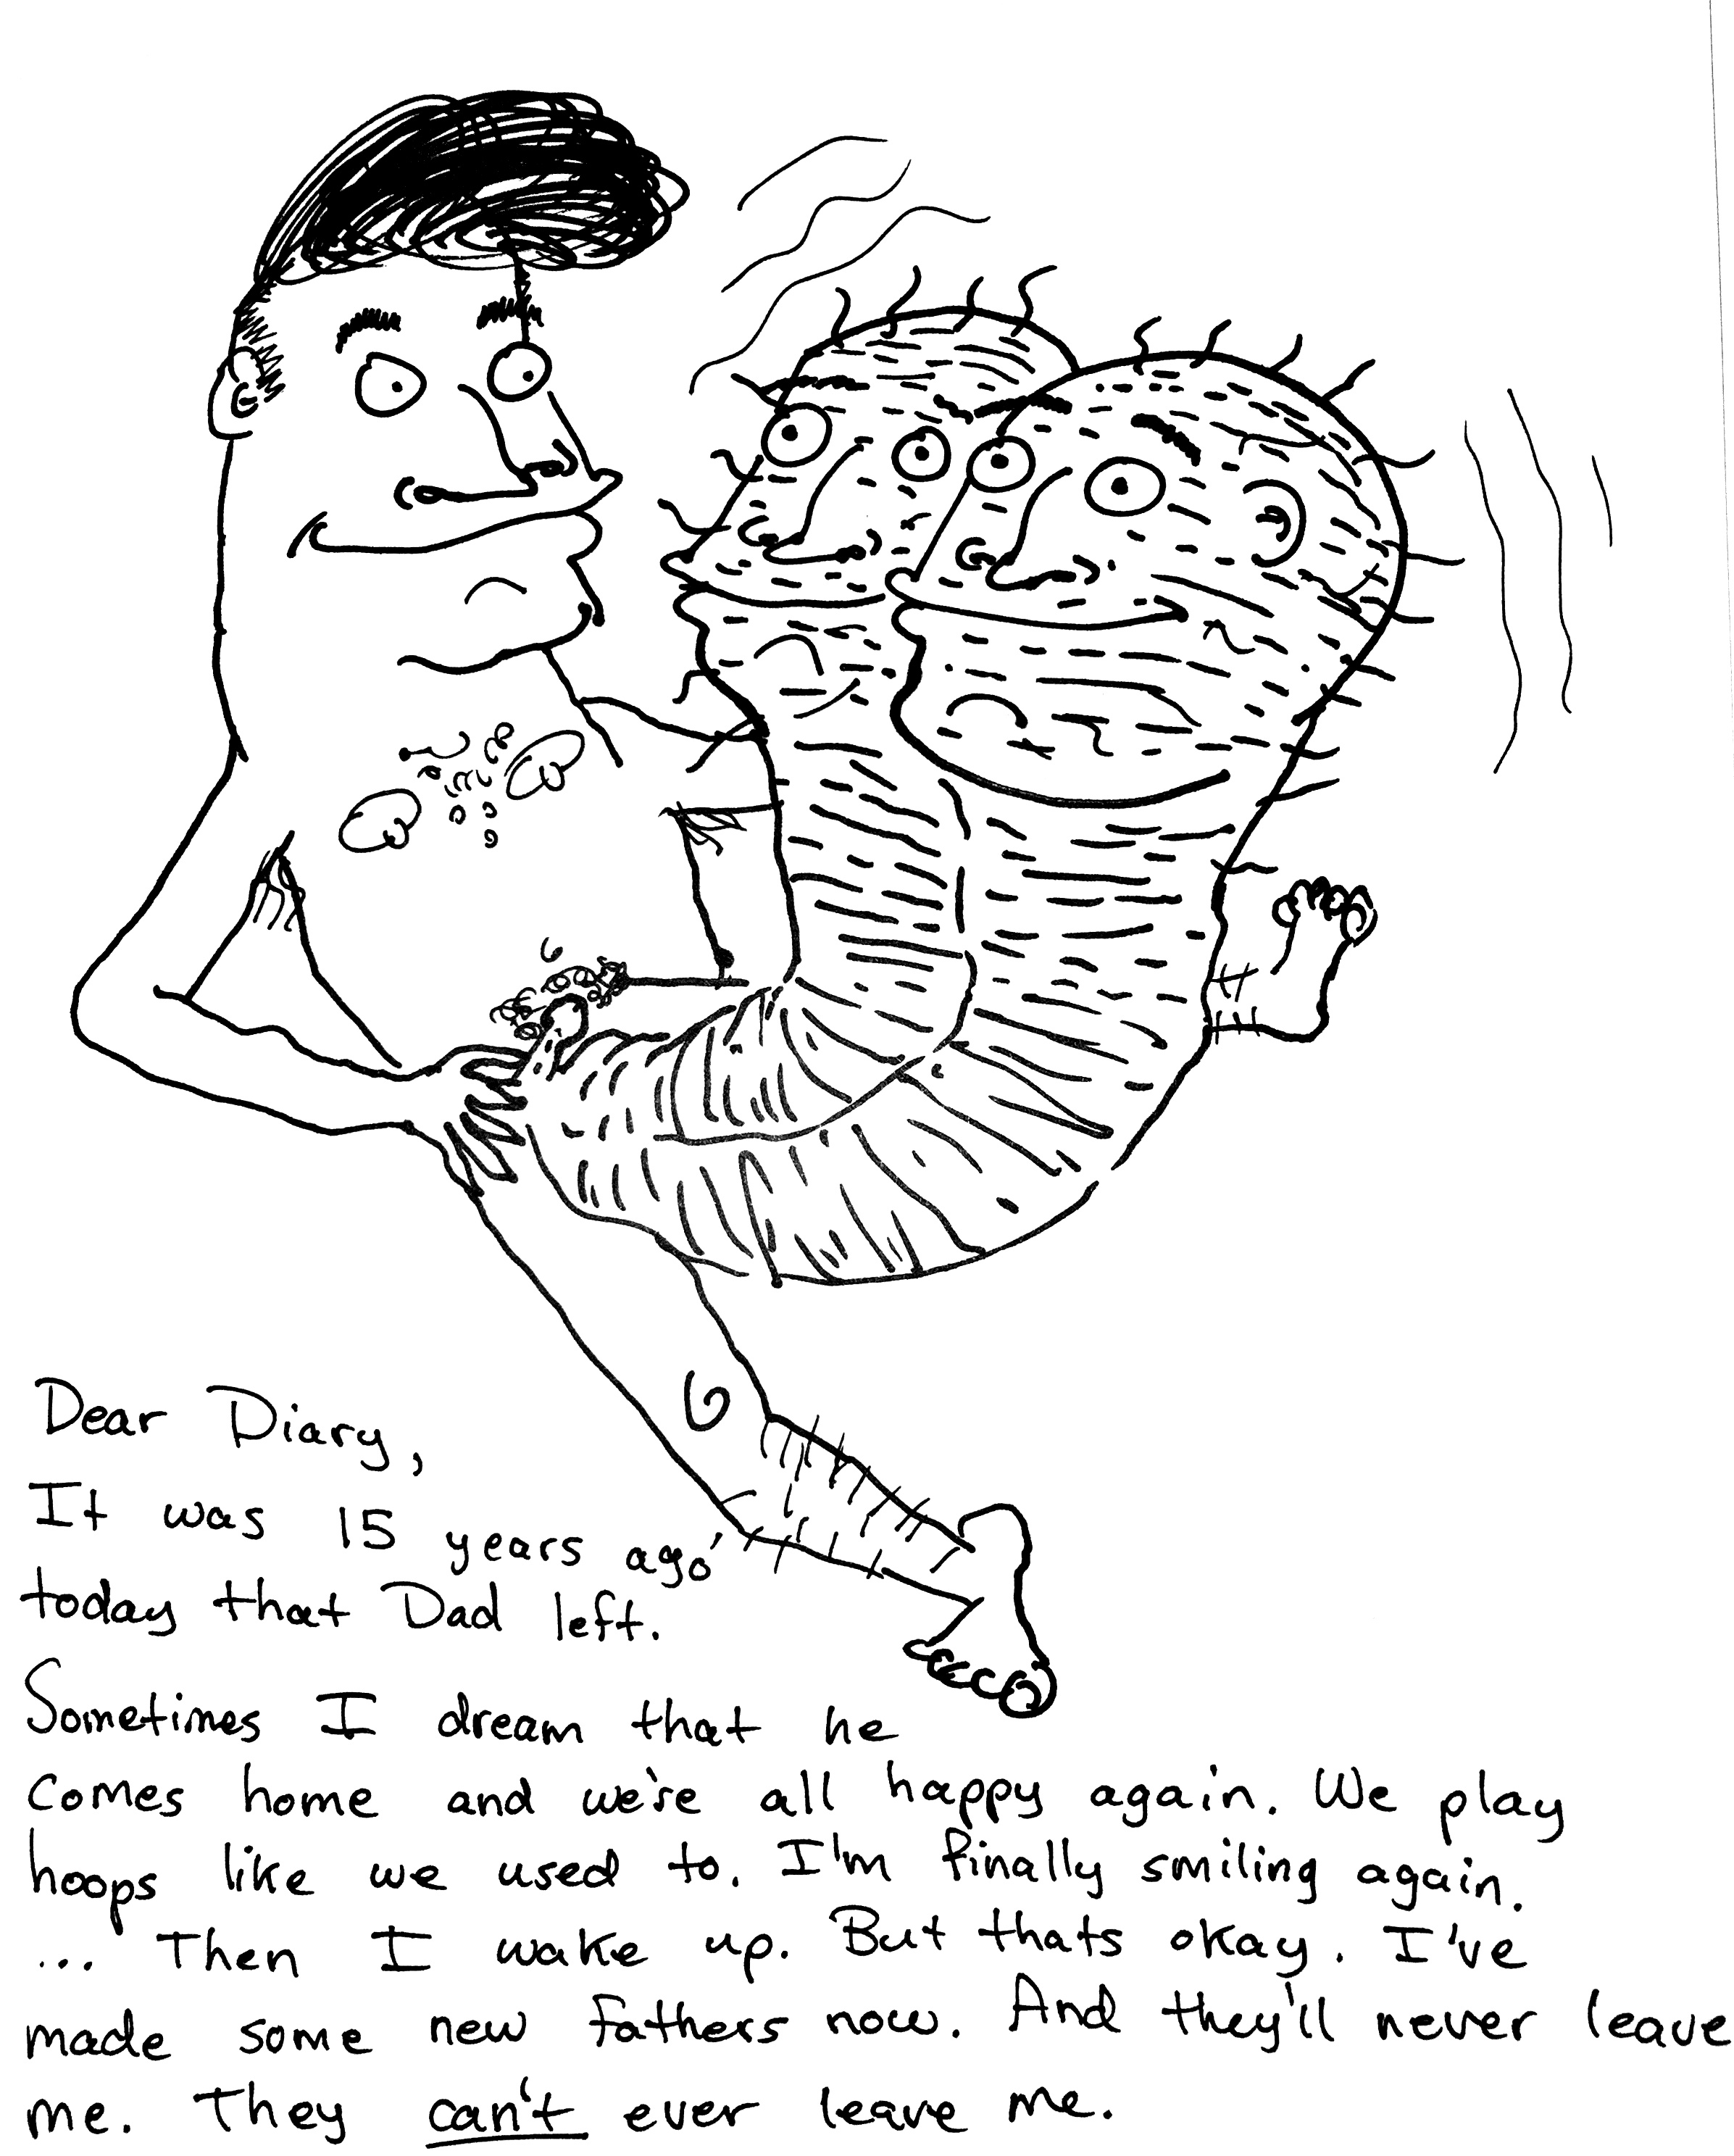 Dear Diary,
It was 15 years ago
today that Dad left.
Sometimes I dream that he
comes home and we're all happy again. We play
hoops like we used to. I'm finally smiling again.
... Then I wake up. But thats okay. I've
made some new fathers now. And they'll never leave
me. They can't ever leave me.